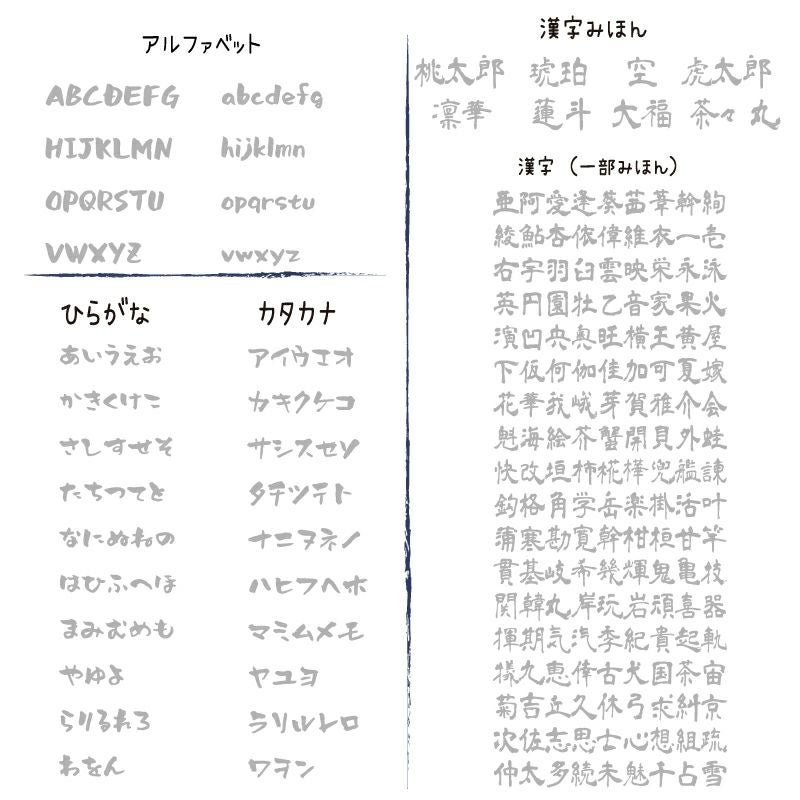 アルファベット
ABCDEFG abcdefg
HIJKLMN hijklmn
OPQRSTU opqrstu
VWXYZ vwxyz
ひらがな
あいうえお
かきくけこ
さしすせそ
たちつてと
なにぬねの
はひふへほ
まみむめも
やゆよ
らりるれろ
わをん
カタカナ
アイウエオ
カキクケコ
サシスセソ
タチツテト
ナニヌネノ
ハヒフヘホ
マミムメモ
ヤユヨ
ラリルレロ
ワヲン
漢字みほん
桃太郎 琥珀 空 虎太郎
凛華 蓮斗 大福 茶々丸
漢字（一部みほん）
亜阿愛逢葵茜葦幹絢
綾鮎杏依偉維衣一壱
右宇羽臼雲映栄永泳
英円園牡乙音家果火
演凹央奥旺横王黄屋
下仮何伽佳加可夏嫁
花華我峨芽賀雅介会
魁海絵芥蟹開貝外蛙
快改垣柿椛樺兜艦諌
鈎格角学岳楽掛活叶
蒲寒勘寛幹柑桓甘竿
貫基岐希幾輝鬼亀技
関韓丸岸玩岩頑喜器
揮期気汽季紀貴起軌
犠九恵倖古犬国茶宙
菊吉丘久休弓求糾京
次佐志思士心想組疏
仲太多続未魅千占雪